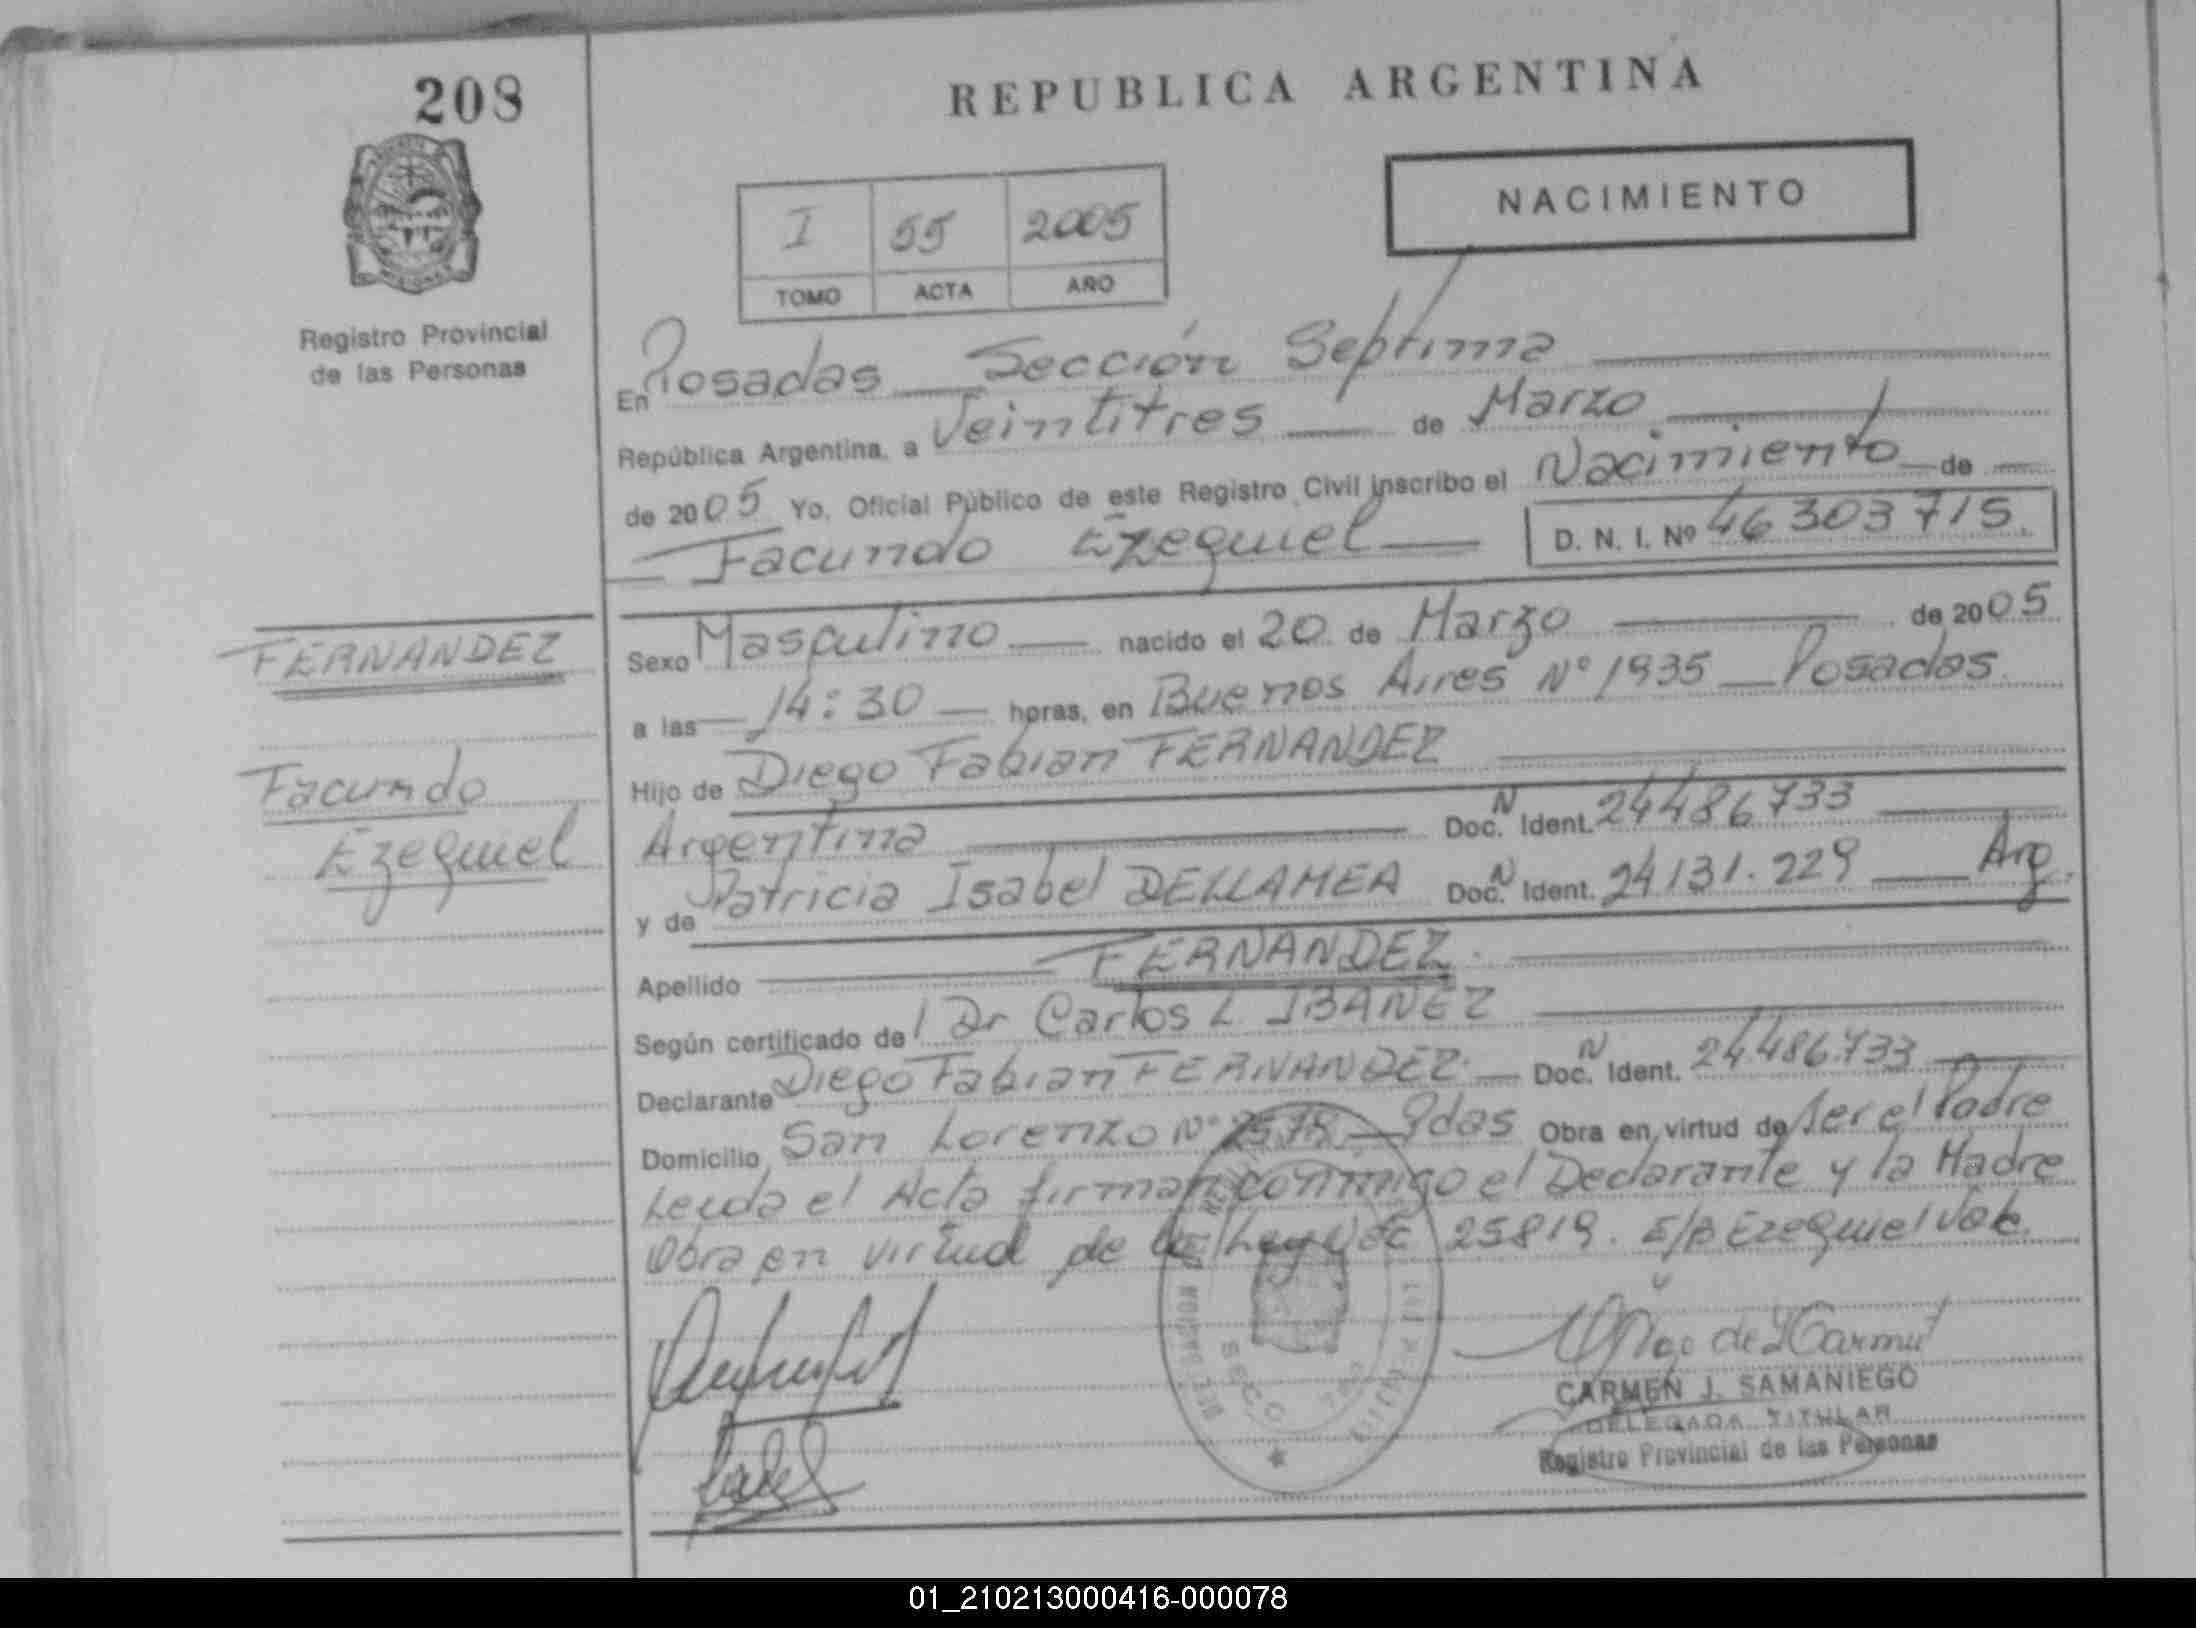 208
REPUBLICA ARGENTINA
NACIMIENTO
I 55 2005
TOMO ACTA AÑO
Registro Provincial
de las Personas
En Posadas Sección Septima
República Argentina, a Veintitres de Marzo
de 2005 Yo, Oficial Público de este Registro Civil inscribo el Nacimiento de
Facundo Ezequiel D. N. I. Nº 46303715.
FERNANDEZ
Facundo
Ezequiel
Sexo Masculino nacido el 20 de Marzo de 2005
a las 14:30 horas, en Buenos Aires Nº 1935 Posadas
Hijo de Diego Fabian FERNANDEZ
Argentina Doc. N Ident. 24486733
y de Patricia Isabel DELLAMEA Doc. N Ident. 24131.229 Arg.
Apellido FERNANDEZ.
Según certificado de l Dr Carlos L IBAÑEZ
Declarante Diego Fabian FERNANDEZ Doc. N Ident. 24.486.733
Domicilio San Lorenzo Nº 2578 Pdas Obra en virtud de ser el Padre
Leida el Acta firman conmigo el Declarante y la Madre
Obra en virtud de la Ley 25819. E/B Ezequiel Vale.
CARMEN J. SAMANIEGO
DELEGADA TITULAR
Registro Provincial de las Personas
01_210213000416-000078